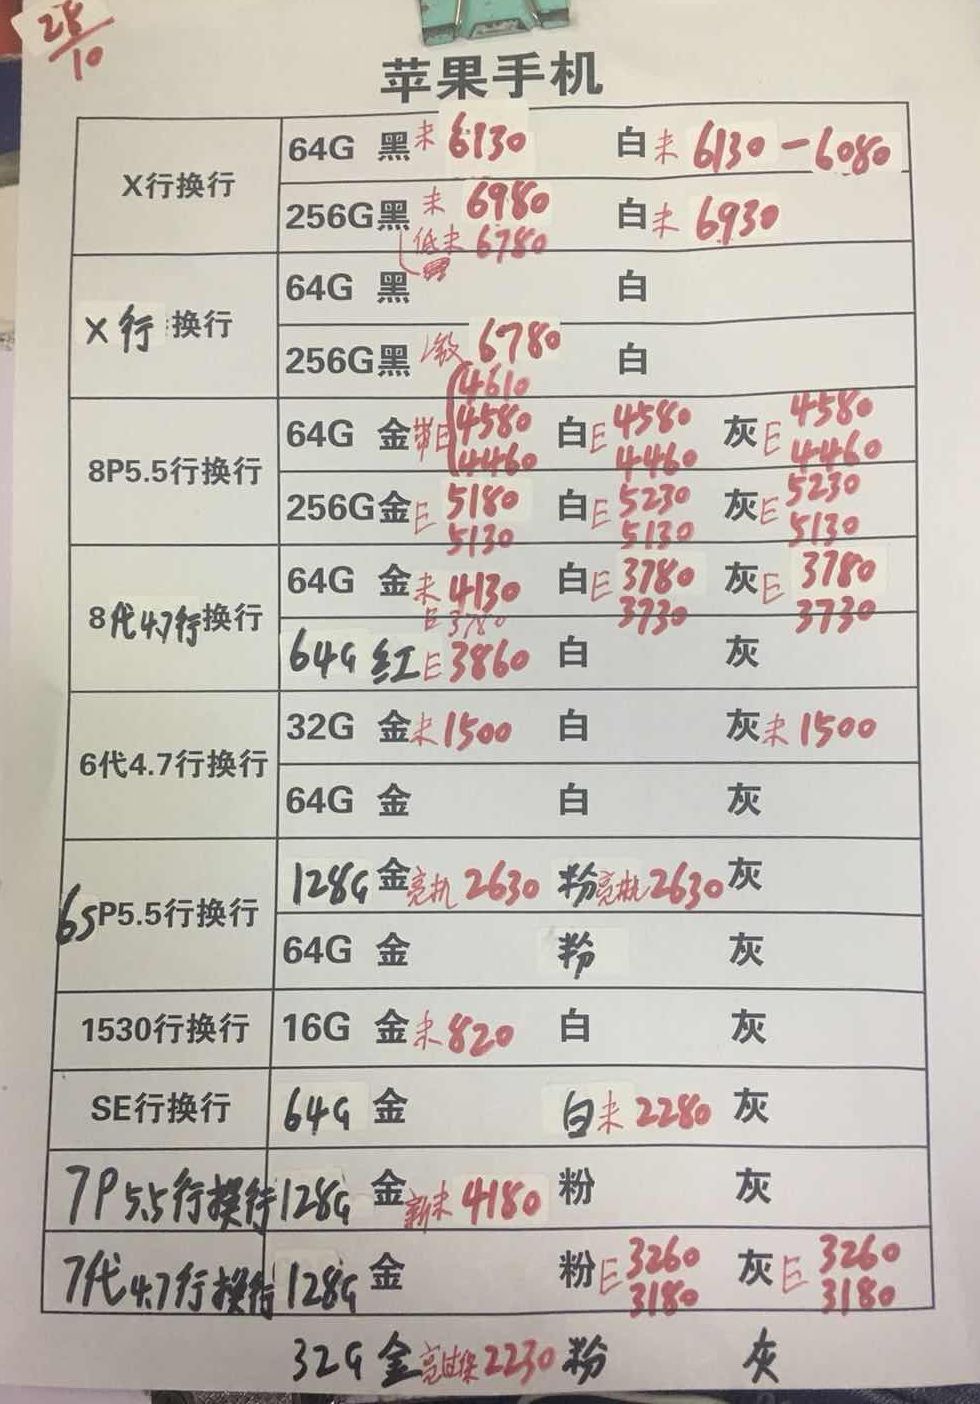 28/10
苹果手机
X行换行 64G 黑 未 6130 白 未 6130-6080
256G 黑 未 6980 白 未 6930
低未 6780
X行换行 64G 黑 白
256G 黑 6780 白
4610
8P5.5行换行 64G 金 带E 4580 白 E 4580 灰 E 4580
4460 4460 4460
256G 金 E 5180 白 E 5230 灰 E 5230
5130 5130 5130
8代4.7行换行 64G 金 未 4130 白 E 3780 灰 E 3780
E 3780 3730 3730
64G 红 E 3860 白 灰
6代4.7行换行 32G 金 未 1500 白 灰 未 1500
64G 金 白 灰
6SP5.5行换行 128G 金 亮机 2630 粉 亮机 2630 灰
64G 金 粉 灰
1530行换行 16G 金 未 820 白 灰
SE行换行 64G 金 白 未 2280 灰
7P5.5行换行 128G 金 新未 4180 粉 灰
7代4.7行换行 128G 金 粉 E 3260 灰 E 3260
3180 3180
32G 金 亮过保 2230 粉 灰